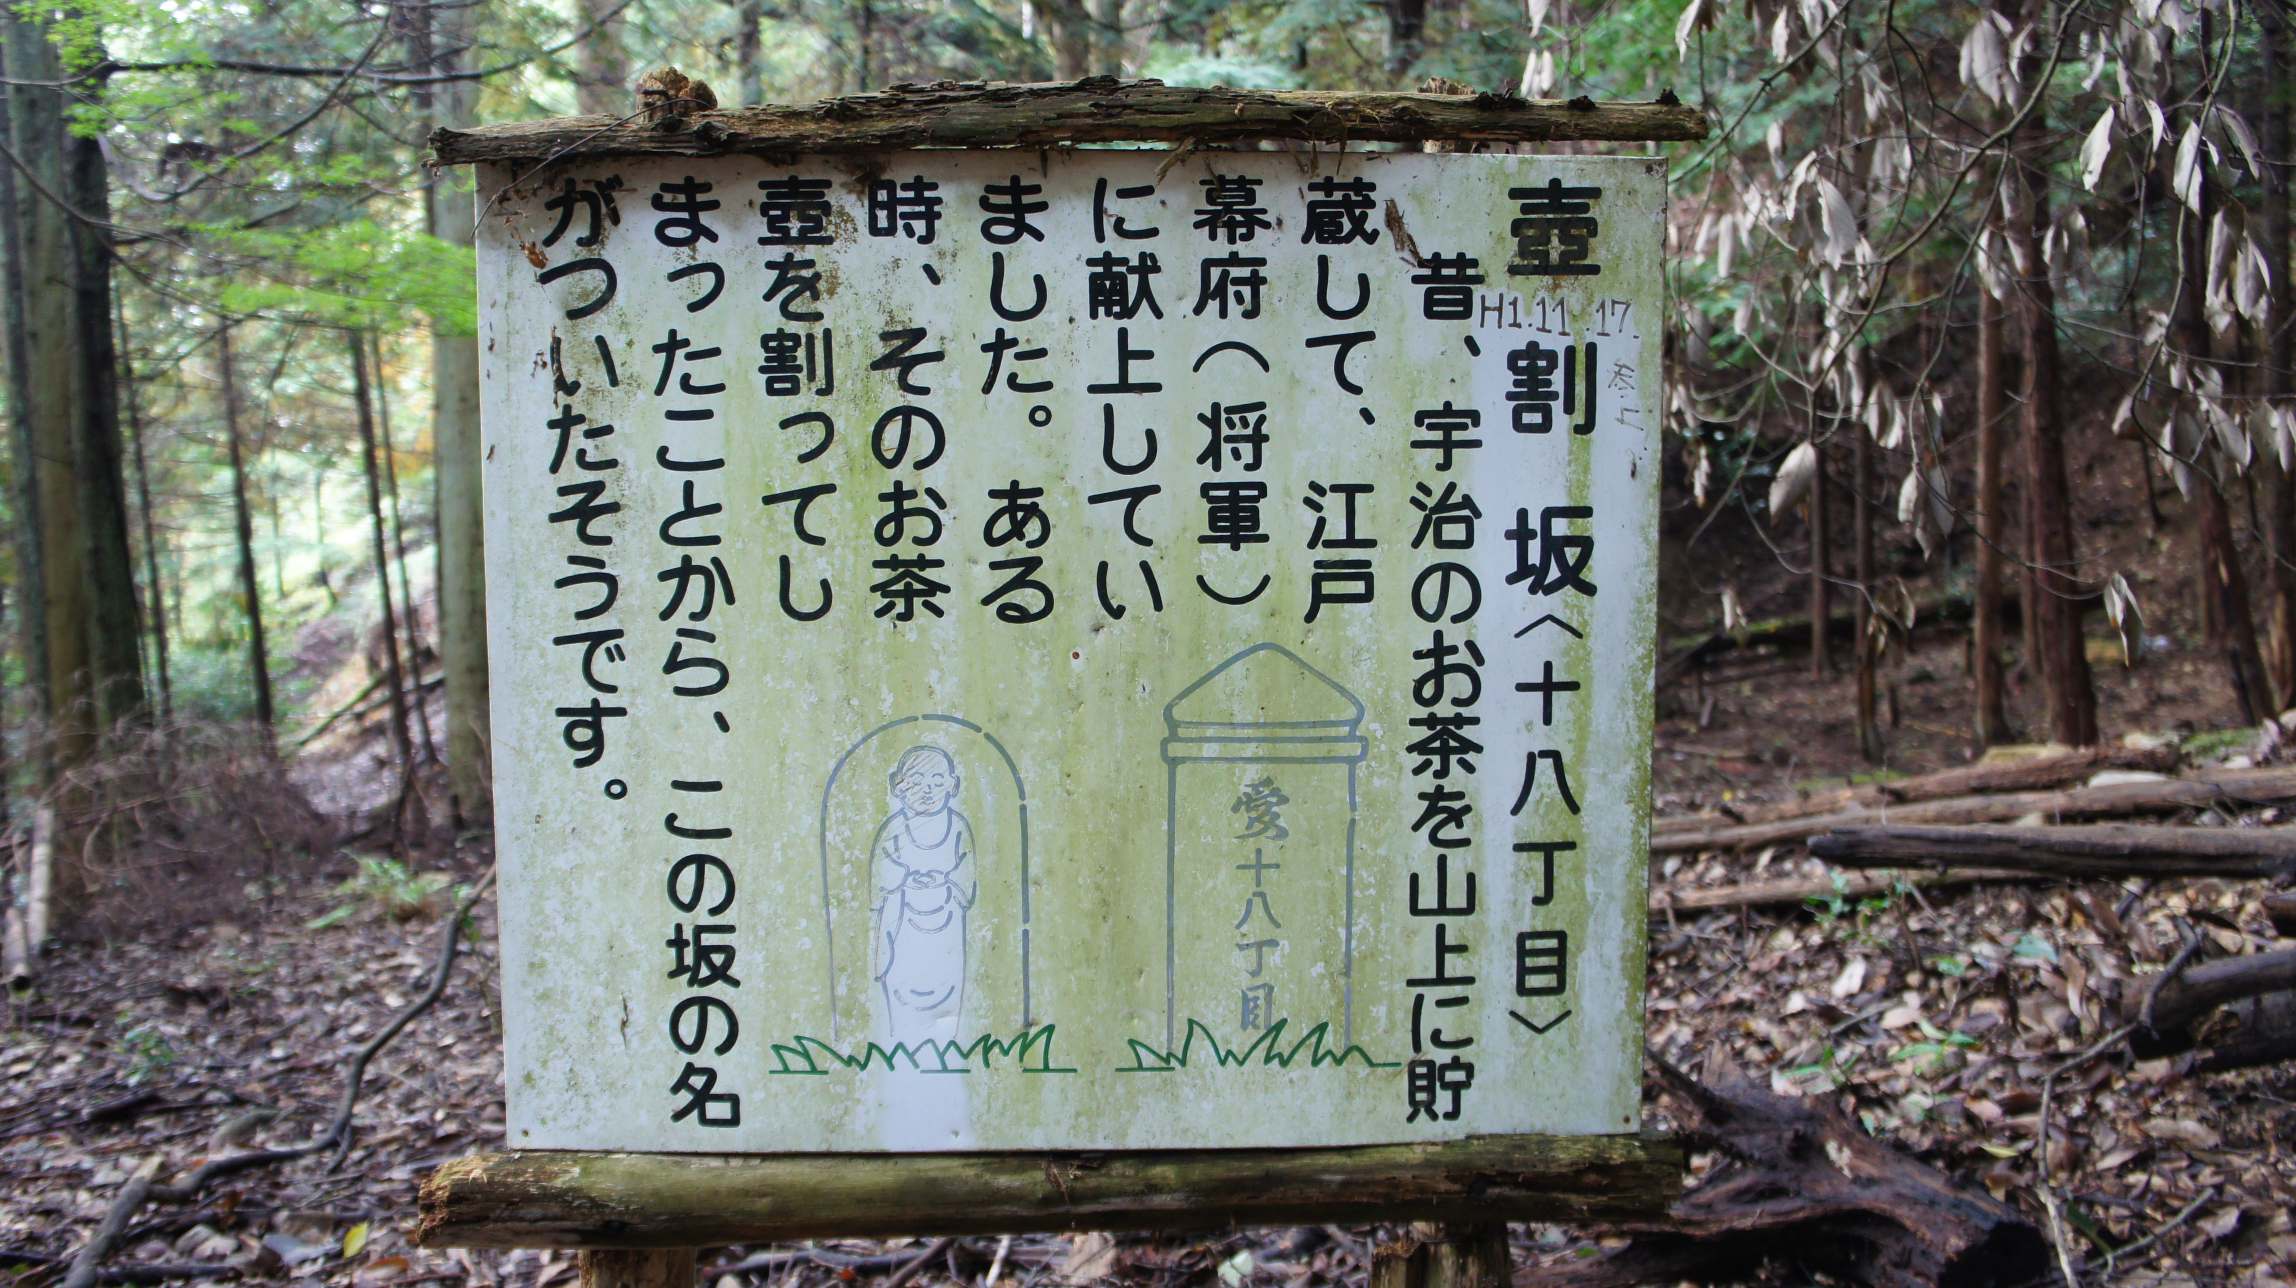 壺割坂〈十八丁目〉
H1.11.17.
昔、宇治のお茶を山上に貯
蔵して、江戸
幕府(将軍)
に献上してい
ました。ある
時、そのお茶
壺を割ってし
まったことから、この坂の名
がついたそうです。
愛十八丁目